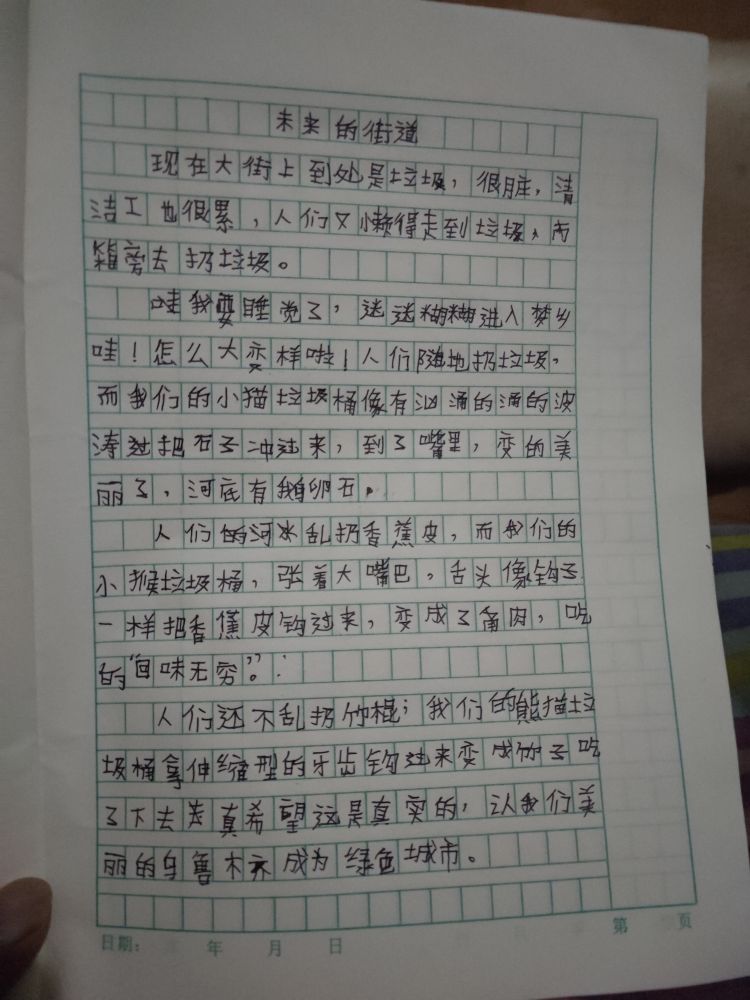 未来的街道
现在大街上到处是垃圾，很脏，清
洁工也很累，人们又懒得走到垃圾
箱旁去扔垃圾。
哇我要睡觉了，迷迷糊糊进入梦乡
哇！怎么大变样啦！人们随地扔垃圾，
而我们的小猫垃圾桶像有汹涌的涌的波
涛过把石子冲过来，到了嘴里，变的美
丽了，河底有鹅卵石。
人们的河水乱扔香蕉皮，而我们的
小猴垃圾桶，张着大嘴巴，舌头像钩子
一样把香蕉皮钩过来，变成了角肉，吃
的“回味无穷”。
人们还不乱扔竹棍；我们的熊猫垃
圾桶拿伸缩型的牙齿钩过来变成竹子吃
了下去真希望这是真实的，认我们美
丽的乌鲁木齐成为绿色城市。
日期： 年 月 日
第 页